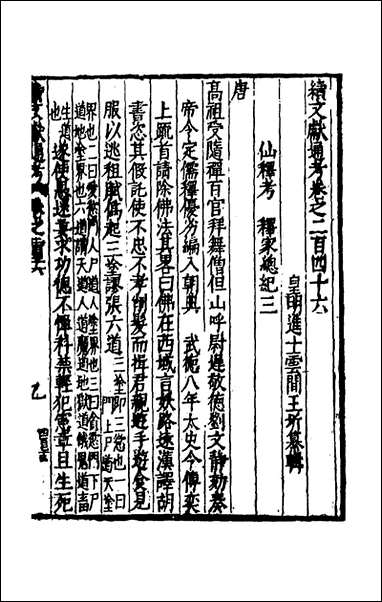 續文獻通考卷之二百四十六
皇明進士雲間王圻纂輯
仙釋考　釋家總紀三
唐
高祖受隋禪百官拜舞僧但山呼尉遲敬德劉文靜勸奏
帝令定儒釋優劣編入朝典　武德八年太史令傅奕
上疏首請除佛法其畧曰佛在西域言妖路遠漢譯胡
書恣其假託使不忠不孝削髮而揖君親遊手遊食易
服以逃租賦偽起三塗謬張六道三塗即三慾也一曰
門上尸道天塗
界也二曰愛慾門人尸人塗界也三曰食慾門下尸
道地塗界也六道謂天道人道魔道地獄道餓鬼道畜
生道也
遂使愚迷妄求功德不憚科禁輕犯憲章且生死